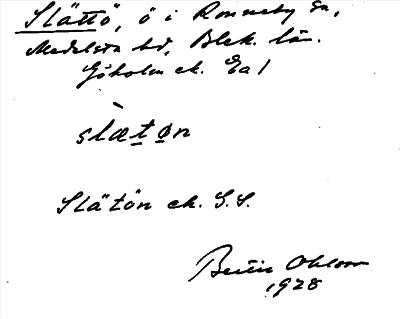 Slättö, ö i Ronneby sn,
Medelsta hd, Blek. län.
Göholm ek. Ea 1
slætøn
Slätön ek. G.S.
Bertil Ohlsson
1928